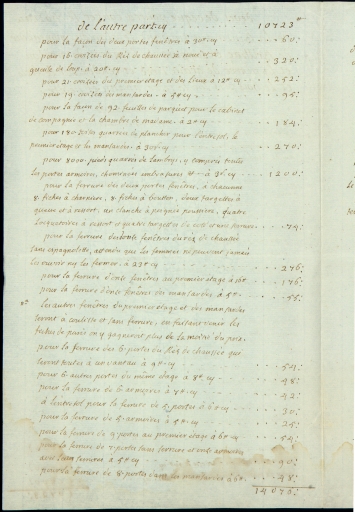 de l'autre part cy ... 10723"
pour la façon des deux portes fenêtres à 30" cy ... 60.
pour 16 croisées du Rez de chaussée à noix et à
gueule de loup, à 20" cy ... 320.
pour 21 croisées du premier etage et des lieux à 12" cy ... 252.
pour 19 croisées des mansardes à 5" cy ... 95.
pour la façon de 92 feuilles de parquet pour le cabinet
de compagnie et la chambre de madame, à 2" cy ... 184.
pour 180 toises quarrées de plancher pour l'entresol, le
premier etage et les mansardes, à 30s cy ... 270.
pour 8000 pieds quarrés de lambris, y compris toutes
les portes armoires, chambranles cy ... 1200.
pour la ferrure des deux portes fenêtres, à chacune
8 fiches à charnière, 8 fiches à bouton, deux targettes à
queue et à ressort, un clanche à poignée, quatre
à ressort et quatre targettes ... 74.
pour la ferrure des fenêtres du rez de chaussée
sans espagnolette, attendu que les femmes ne peuvent jamais
les ouvrir ny les fermer, à 23" cy ... 276.
pour la ferrure d'onze fenêtres au premier etage à 16" ... 176.
pour la ferrure d'onze fenêtres des mansardes à 5" ... 55.
les autres fenêtres du premier etage et des mansardes
seront à coulisse et sans ferrure, en faisant venir les
fiches de paris on y gagneroit plus de la moitié du prix.
pour la ferrure des 6 portes du Rez de chaussée qui
seront toutes à un vantau à 9" cy ... 54.
pour 6 autres portes du même etage à 8" cy ... 48.
pour la ferrure de 6 armoires à 7" cy ... 42.
à l'entresol pour la ferrure de 5 portes à 6" cy ... 30.
pour la ferrure de 5 armoires à 5" cy ... 25.
pour la ferrure de 9 portes au premier etage à 6" cy ... 54.
pour la ferrure de 7 portes sans ferrure et onze armoires
avec leurs ferrures à 5" cy ... 90.
pour la ferrure de 8 portes dans les mansardes à 6" ... 48.
14076.